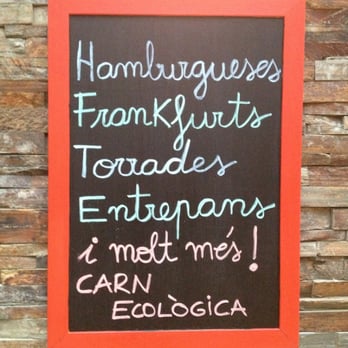 Hamburgueses
Frankfurts
Torrades
Entrepans
i molt més!
CARN
ECOLÒGICA